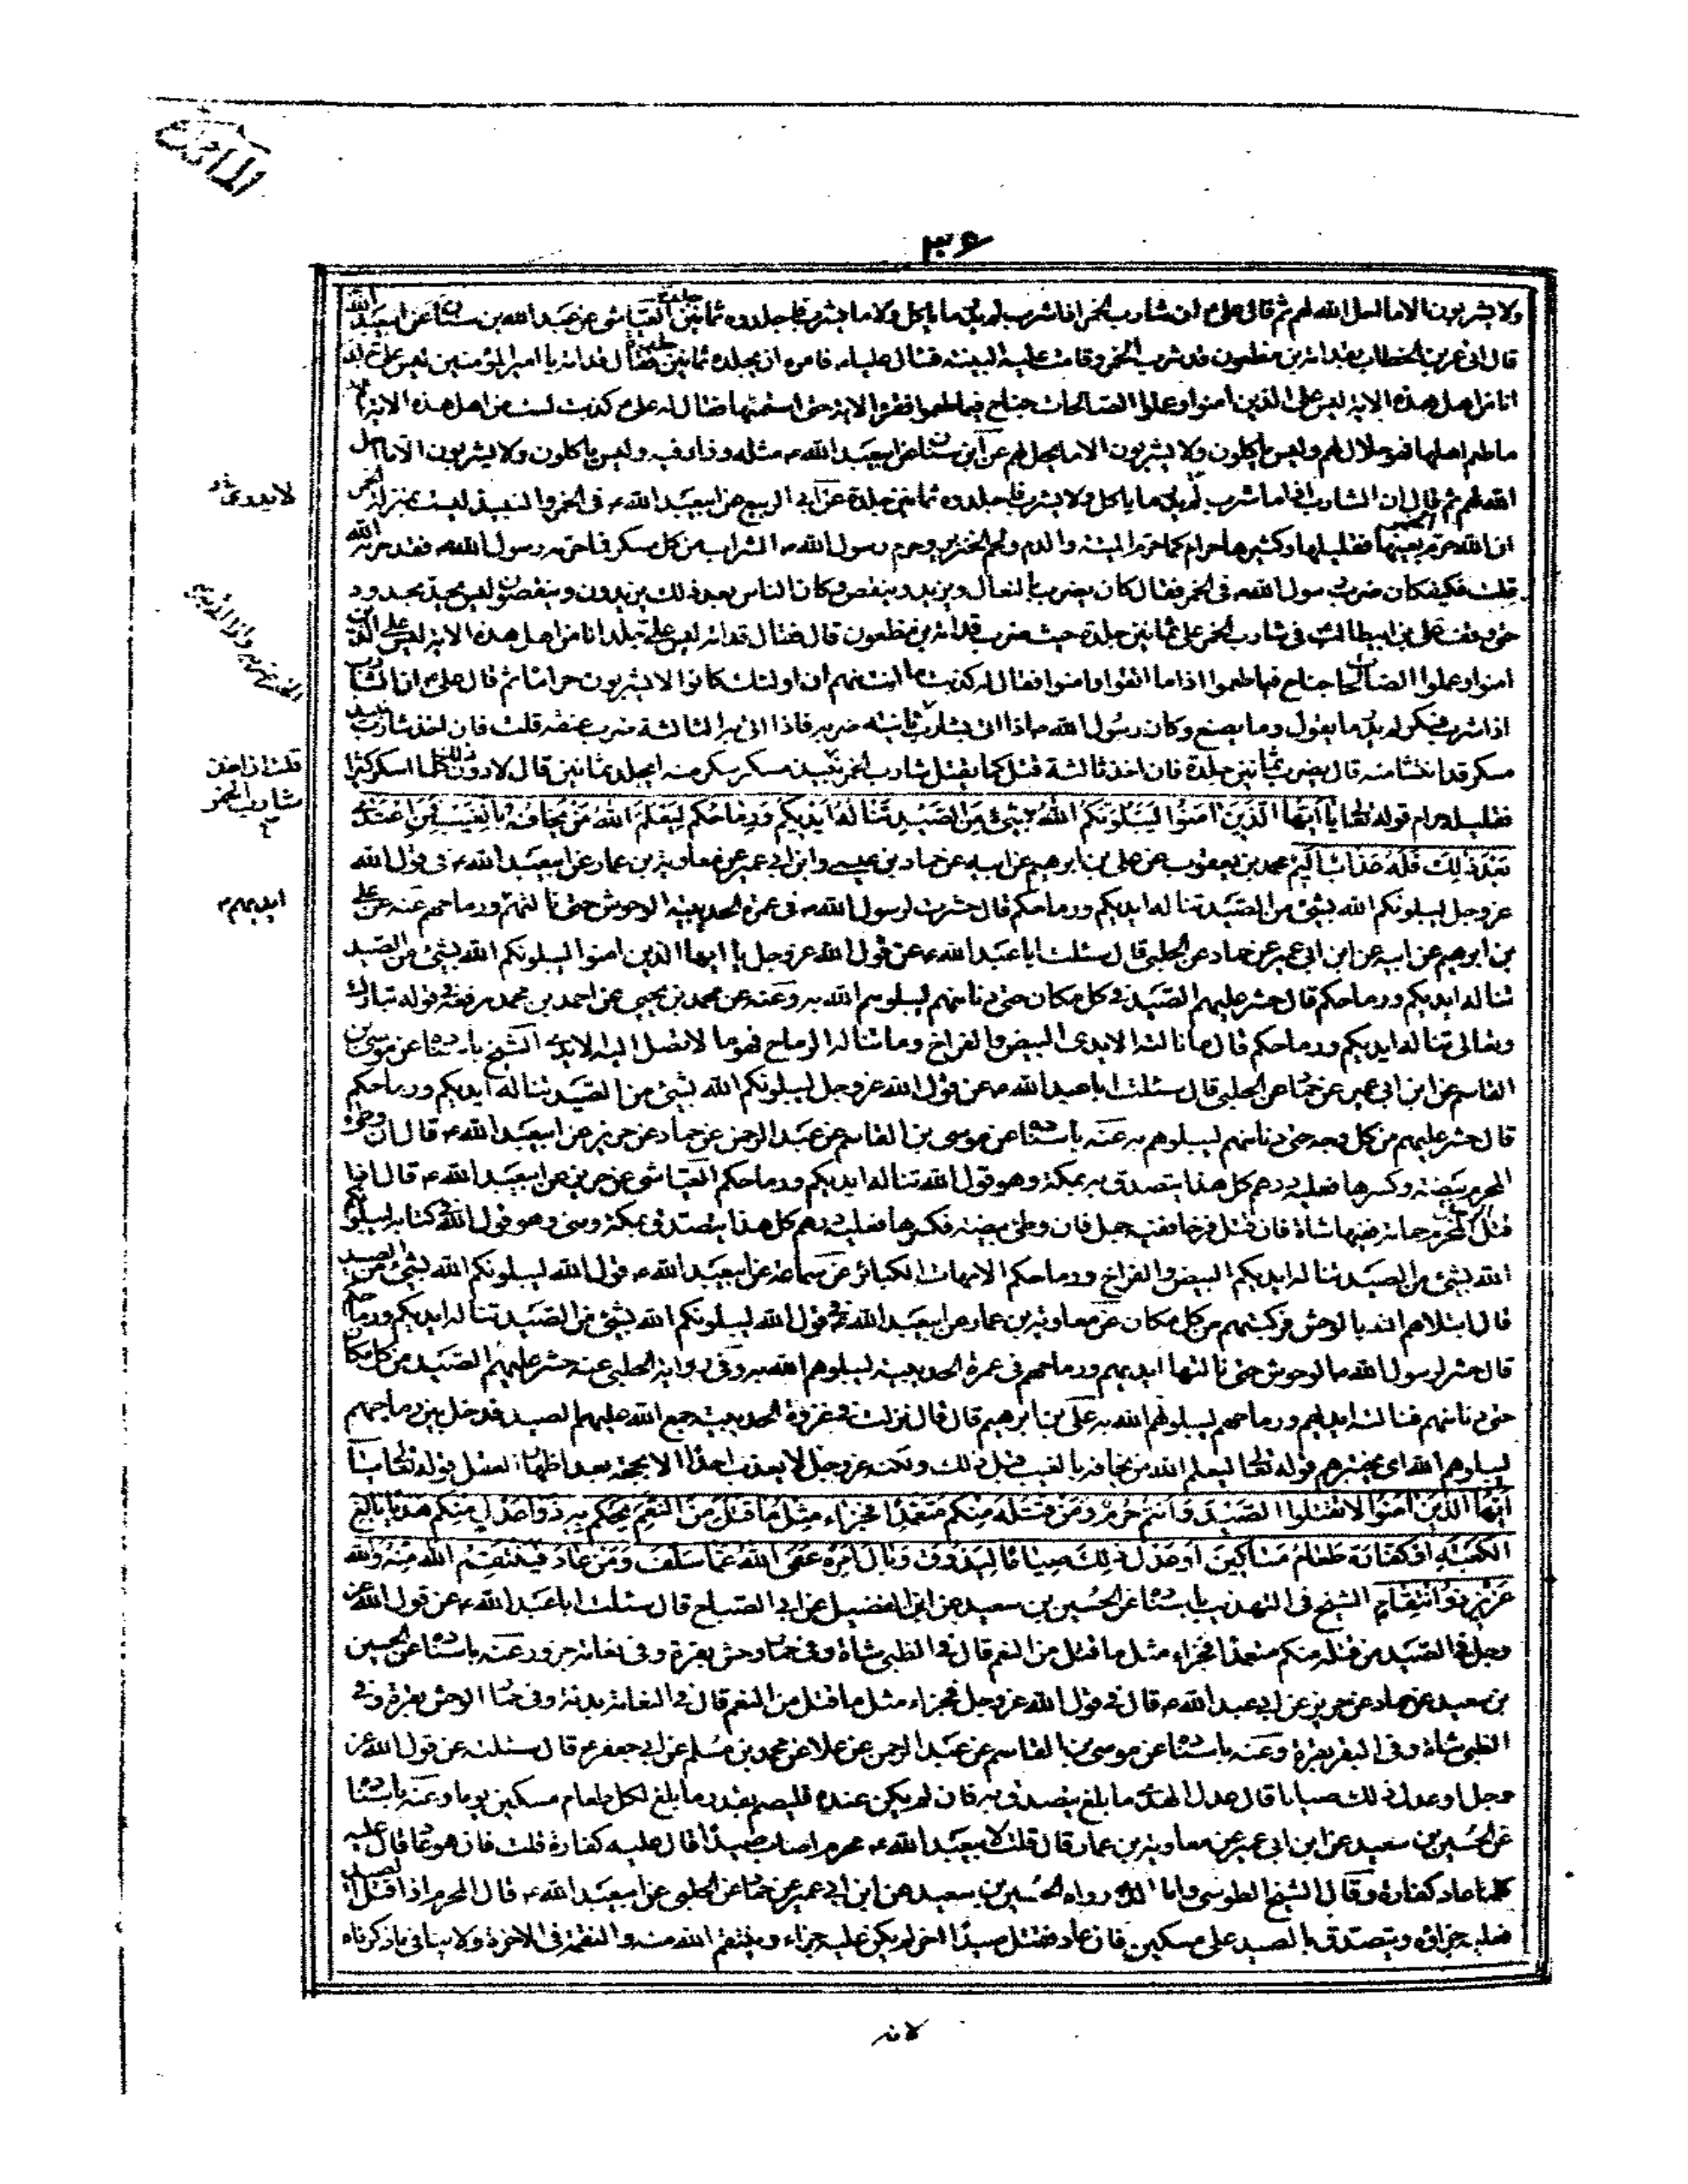 المائدة
٣٠٦
ولا يشربون الا ما احل الله لهم ثم قال علي ع ان شارب الخمر اذا شرب لم يدر ما ياكل ولا ما يشرب فاجلدوه ثمانين جلدة العياشي عن عبد الله بن سنان عن ابيعبد الله
قال اتى عمر بن الخطاب بقدامة بن مظعون قد شرب الخمر وقامت عليه البينة فسال عليا ء فامره ان يجلده ثمانين جلدة فقال قدامة يا امير المؤمنين ليس علي حد
انا من اهل هذه الاية ليس على الذين امنوا وعملوا الصالحات جناح فيما طعموا فقرء الاية حتى استتمها فقال له علي ع كذبت لست من اهل هذه الاية
ما طعم اهلها فهو حلال لهم وليس ياكلون ولا يشربون الا ما يحل لهم عن ابن سنان عن ابيعبد الله ء مثله وزاد فيه وليس ياكلون ولا يشربون الا ما احل
الله لهم ثم قال ان الشارب اذا ما شرب لم يدر ما ياكل ولا يشرب فاجلدوه ثمانين جلدة عن ابي الربيع عن ابيعبد الله ء في الخمر والنبيذ ليست بمنزلة الخمر
ان الله حرم الخمر بعينها فقليلها وكثيرها حرام كما حرم الميتة والدم ولحم الخنزير وحرم رسول الله ص الشراب من كل مسكر فما حرمه رسول الله ص فقد حرمه الله
قلت فكيف كان ضرب رسول الله ص في الخمر فقال كان يضرب بالنعال ويزيد وينقص وكان الناس بعد ذلك يزيدون وينقصون ليس بحد محدود
حتى وقف علي بن ابيطالب في شارب الخمر على ثمانين جلدة حيث ضرب قدامة بن مظعون قال فقال قدامة ليس علي جلد انا من اهل هذه الاية ليس على الذين
امنوا وعملوا الصالحات جناح فيما طعموا اذا ما اتقوا وامنوا فقال له كذبت ما انت منهم ان اولئك كانوا لا يشربون حراما ثم قال علي ء ان الشارب
اذا شرب فسكر لم يدر ما يقول وما يصنع وكان رسول الله ص اذا اتى بشارب الخمر ضربه فاذا اتى به ثانية ضربه فاذا اتى به الثالثة ضرب عنقه قلت فان اخذ شارب نبيذ
مسكر قد انتشا منه قال يضرب ثمانين جلدة فان اخذ ثالثة قتل كما يقتل شارب الخمر
فقليله حرام قوله تعالى يا ايها الذين امنوا ليبلونكم الله بشئ من الصيد تناله ايديكم ورماحكم ليعلم الله من يخافه بالغيب فمن اعتدى
بعد ذلك فله عذاب اليم محمد بن يعقوب عن علي بن ابرهيم عن ابيه عن حماد بن عيسى وابن ابي عمير عن معاوية بن عمار عن ابيعبد الله ء في قول الله
عز وجل ليبلونكم الله بشئ من الصيد تناله ايديكم ورماحكم قال حشرت لرسول الله ص في عمرة الحديبية الوحوش حتى نالتهم ورماحهم عنه عن علي
بن ابرهيم عن ابيه عن ابن ابي عمير عن حماد عن الحلبي قال سئلت ابا عبد الله ء عن قول الله عز وجل يا ايها الذين امنوا ليبلونكم الله بشئ من الصيد
تناله ايديكم ورماحكم قال حشر عليهم الصيد في كل مكان حتى دنا منهم ليبلوهم الله به وعنه عن محمد بن يحيى عن احمد بن محمد رفعه في قوله تبارك
وتعالى تناله ايديكم ورماحكم قال ما تناله الايدي البيض والفراخ وما تناله الرماح فهو ما لا تصل اليه الايدي الشيخ باسناده عن موسى بن
القاسم عن ابن ابي عمير عن حماد عن الحلبي قال سئلت ابا عبد الله ء عن قول الله عز وجل ليبلونكم الله بشئ من الصيد تناله ايديكم ورماحكم
قال حشر عليهم من كل وجه حتى دنا منهم ليبلوهم به عنه باسناده عن موسى بن القاسم عن عبد الرحمن عن حماد عن حريز عن ابيعبد الله ء قال ان وطئ
المحرم بيضة وكسرها فعليه درهم كل هذا يتصدق به بمكة وهو قول الله تناله ايديكم ورماحكم العياشي عن حريز عن ابيعبد الله ء قال اذا
قتل المحرم حمامة ففيها شاة فان قتل فرخا ففيه جمل فان وطئ بيضة فكسرها فعليه درهم كل هذا يتصدق بمكة ومنى وهو قول الله في كتابه ليبلونكم
الله بشئ من الصيد تناله ايديكم البيض والفراخ ورماحكم الامهات الكبار عن سماعة عن ابيعبد الله ء قول الله ليبلونكم الله بشئ من الصيد
قال ابتلاهم الله بالوحش فركبتهم من كل مكان عن معاوية بن عمار عن ابيعبد الله في قول الله ليبلونكم الله بشئ من الصيد تناله ايديكم ورماحكم
قال حشر لرسول الله ص الوحوش حتى نالتها ايديهم ورماحهم في عمرة الحديبية ليبلوهم الله به وفي رواية الحلبي عنه حشر عليهم الصيد من كل مكان
حتى دنا منهم فنالته ايديهم ورماحهم ليبلوهم الله به علي بن ابرهيم قال قال نزلت في غزوة الحديبية جمع الله عليهم الصيد فدخل بين رماحهم
ليبلوهم الله اي يختبرهم قوله تعالى ليعلم الله من يخافه بالغيب قبل ذلك ولكنه عز وجل لا يعذب احدا الا بحجة بعد اظهار الفعل قوله تعالى يا
ايها الذين امنوا لا تقتلوا الصيد وانتم حرم ومن قتله منكم متعمدا فجزاء مثل ما قتل من النعم يحكم به ذوا عدل منكم هديا بالغ
الكعبة او كفارة طعام مساكين او عدل ذلك صياما ليذوق وبال امره عفى الله عما سلف ومن عاد فينتقم الله منه والله
عزيز ذو انتقام الشيخ في التهذيب باسناده عن الحسين بن سعيد عن ابن الفضيل عن ابي الصباح قال سئلت ابا عبد الله ء عن قول الله عز
وجل في الصيد من قتله منكم متعمدا فجزاء مثل ما قتل من النعم قال في الظبي شاة وفي حمار وحش بقرة وفي نعامة جزور عنه باسناده عن الحسين
بن سعيد عن حماد عن حريز عن ابي عبد الله ء قال في قول الله عز وجل فجزاء مثل ما قتل من النعم قال في النعامة بدنة وفي حمار الوحش بقرة وفي
الظبي شاة وفي البقر بقرة وعنه باسناده عن موسى بن القاسم عن عبد الرحمن عن علا عن محمد بن مسلم عن ابي جعفر ء قال سئلته عن قول الله عز
وجل او عدل ذلك صياما قال عدل الهدى ما بلغ يتصدق به فان لم يكن عنده فليصم بقدر ما بلغ لكل طعام مسكين يوما وعنه باسناده
عن الحسين بن سعيد عن ابن ابي عمير عن معاوية بن عمار قال قلت لابيعبد الله ء محرم اصاب صيدا قال عليه كفارة قلت فان هو عاد قال عليه
كلما عاد كفارة وقال الشيخ الطوسي واما الذي رواه الحسين بن سعيد عن ابن ابي عمير عن حماد عن الحلبي عن ابيعبد الله ء قال المحرم اذا قتل الصيد
فعليه جزاؤه ويتصدق بالصيد على مسكين فان عاد فقتل صيدا اخر لم يكن عليه جزاء وينتقم الله منه والنقمة في الاخرة ولا ينافي ما ذكرناه
قلت ان اخذ
شارب الخمر
ايديهم
لانه